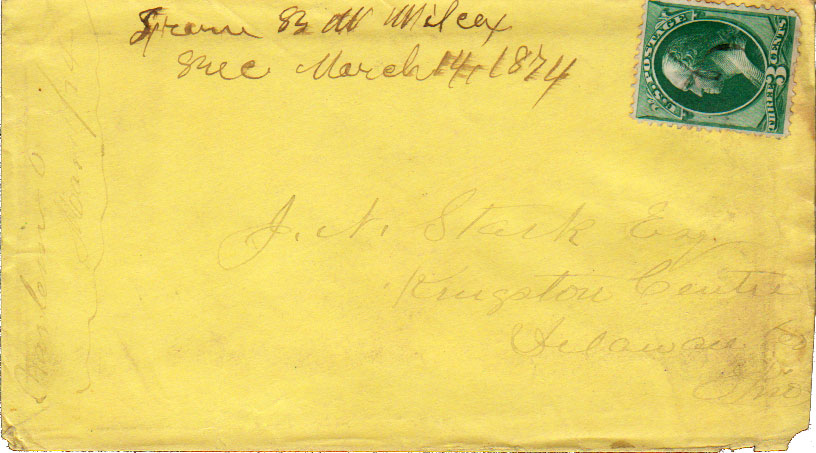 From B W Wilcox
Rec March 14, 1874
U.S. POSTAGE
3 CENTS
J. N. Stark Esq.
Kingston Centre
Delaware Co
Ohio